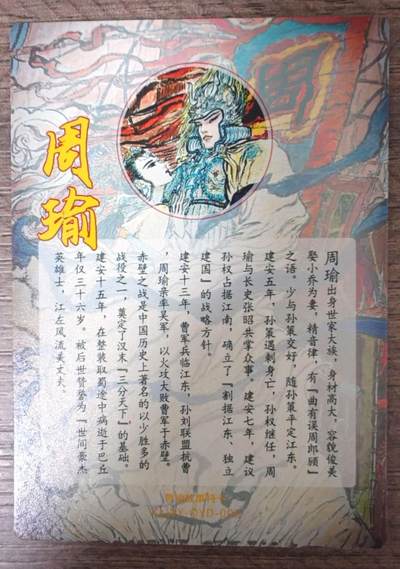 周
周瑜
周瑜出身世家大族，身材高大，容貌俊美
娶小乔为妻，精音律，有『曲有误周郎顾』
之语。少与孙策交好 随孙策平定江东。
建安五年，孙策遇刺身亡，孙权继任，周
瑜与长史张昭共掌众事，建安七年，建议
孙权占据江南，确立了『割据江东、独立
建国』的战略方针。
建安十三年，曹军兵临江东，孙刘联盟抗曹
，周瑜亲率吴军，以火攻大败曹军于赤壁。
赤壁之战是中国历史上著名的以少胜多的
战役之一，奠定了汉末『三分天下』的基础。
建安十五年，在整装取蜀途中病逝于巴丘
年仅三十六岁。被后世赞誉为『世间豪杰
英雄士，江左风流美丈夫。